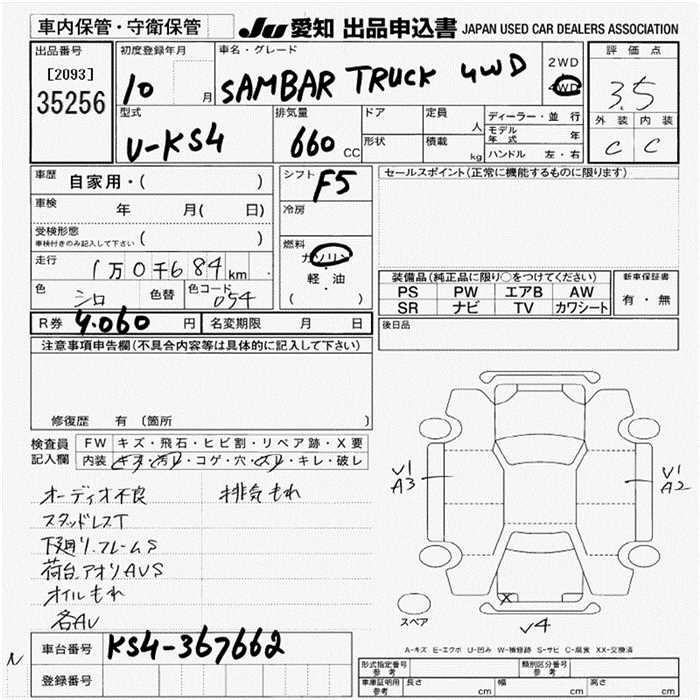 車内保管・守衛保管
JU 愛知 出品申込書 JAPAN USED CAR DEALERS ASSOCIATION
出品番号
[2093]
35256
初度登録年月
10 月
車名・グレード
SAMBAR TRUCK 4WD
2WD
4WD
評価点
3.5
外装 内装
C C
型式
V-KS4
排気量
660 CC
ドア
形状
定員 人
積載 kg
ディーラー・並行
モデル年式 年
ハンドル 左・右
車歴 自家用・( )
車検 年 月( 日)
受検形態
車検付きのみ記入して下さい ( )
走行 1万0千684 km
色 シロ 色替 色コード 054
シフト F5
冷房
燃料
ガソリン
・
軽・油
( )
セールスポイント(正常に機能するものに限ります)
装備品(純正品に限り○をつけてください)
PS PW エアB AW
SR ナビ TV カワシート
新車保証書
有・無
後日品
R券 4.060 円 名変期限 月 日
注意事項申告欄(不具合内容等は具体的に記入して下さい)
修復歴 有 〔箇所
検査員記入欄
FW キズ・飛石・ヒビ割・リペア跡・X要
内装 キズ・汚レ・コゲ・穴・スレ・キレ・破レ
オーディオ不良 排気もれ
スタッドレスT
下廻リ.フレームS
荷台.アオリAVS
オイルもれ
各AV
V1
A3
V1
A2
X
V4
スペア
A-キズ E-エクボ U-凹み W-補修跡 S-サビ C-腐食 XX-交換済
車台番号 KS4-367662
登録番号
形式指定番号 参考
類別区分番号 参考
車庫証明用 参考 長さ cm 幅 cm 高さ cm